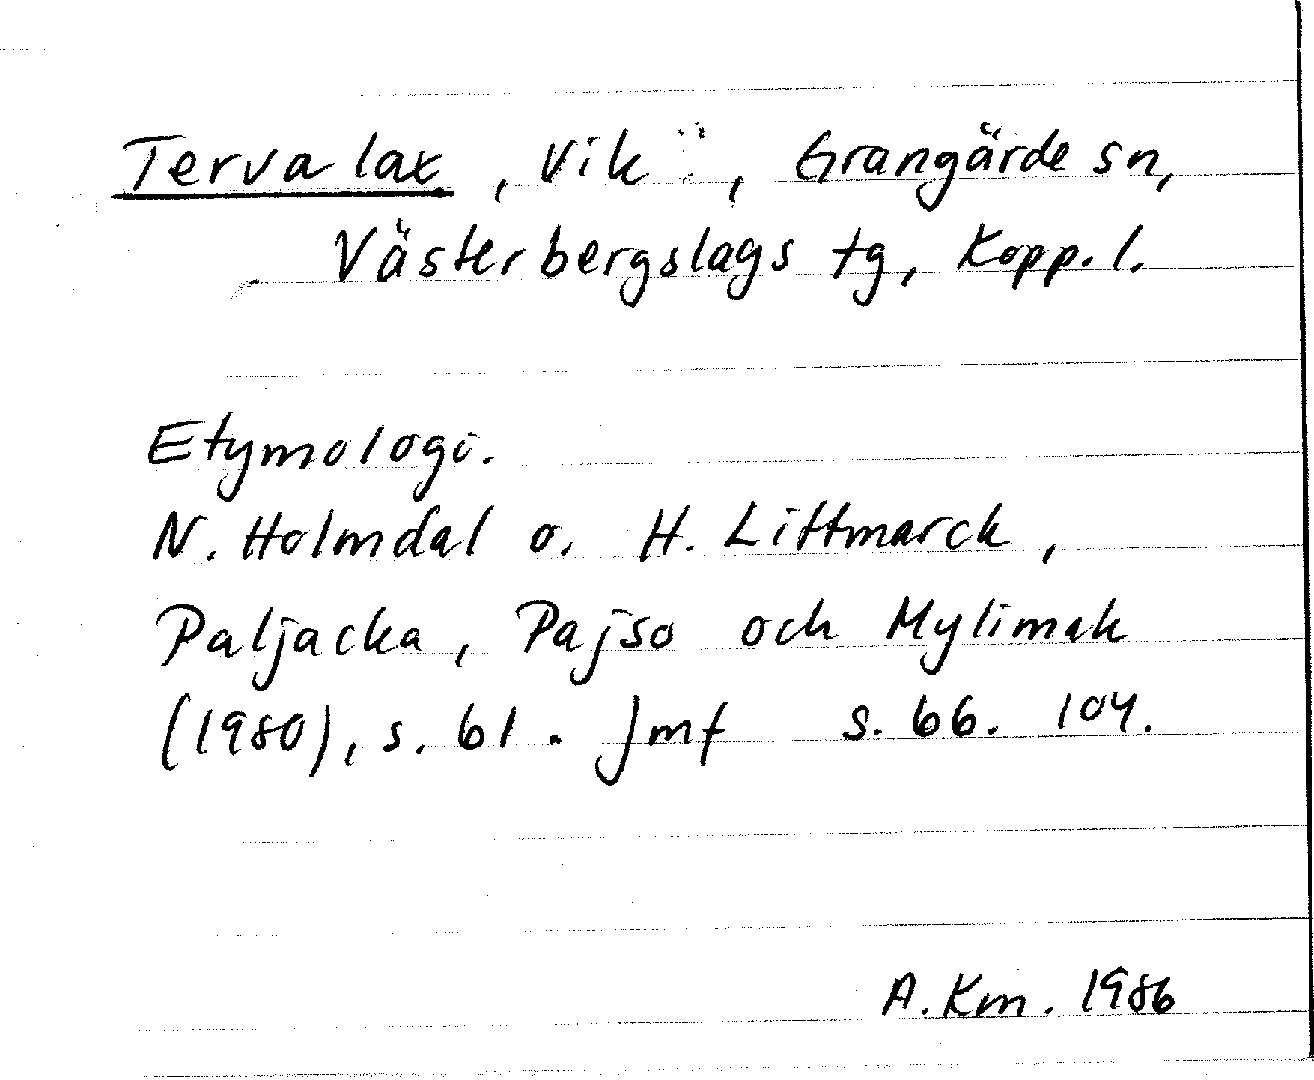 Tervalax, Vik, Grangärde sn,
Västerbergslags tg, Kopp. l.
Etymologi.
N. Holmdal o. H. Littmarck,
Paljacka, Pajso och Mylimak
(1980), s. 61. Jmf s. 66. 104.
A. Km. 1986